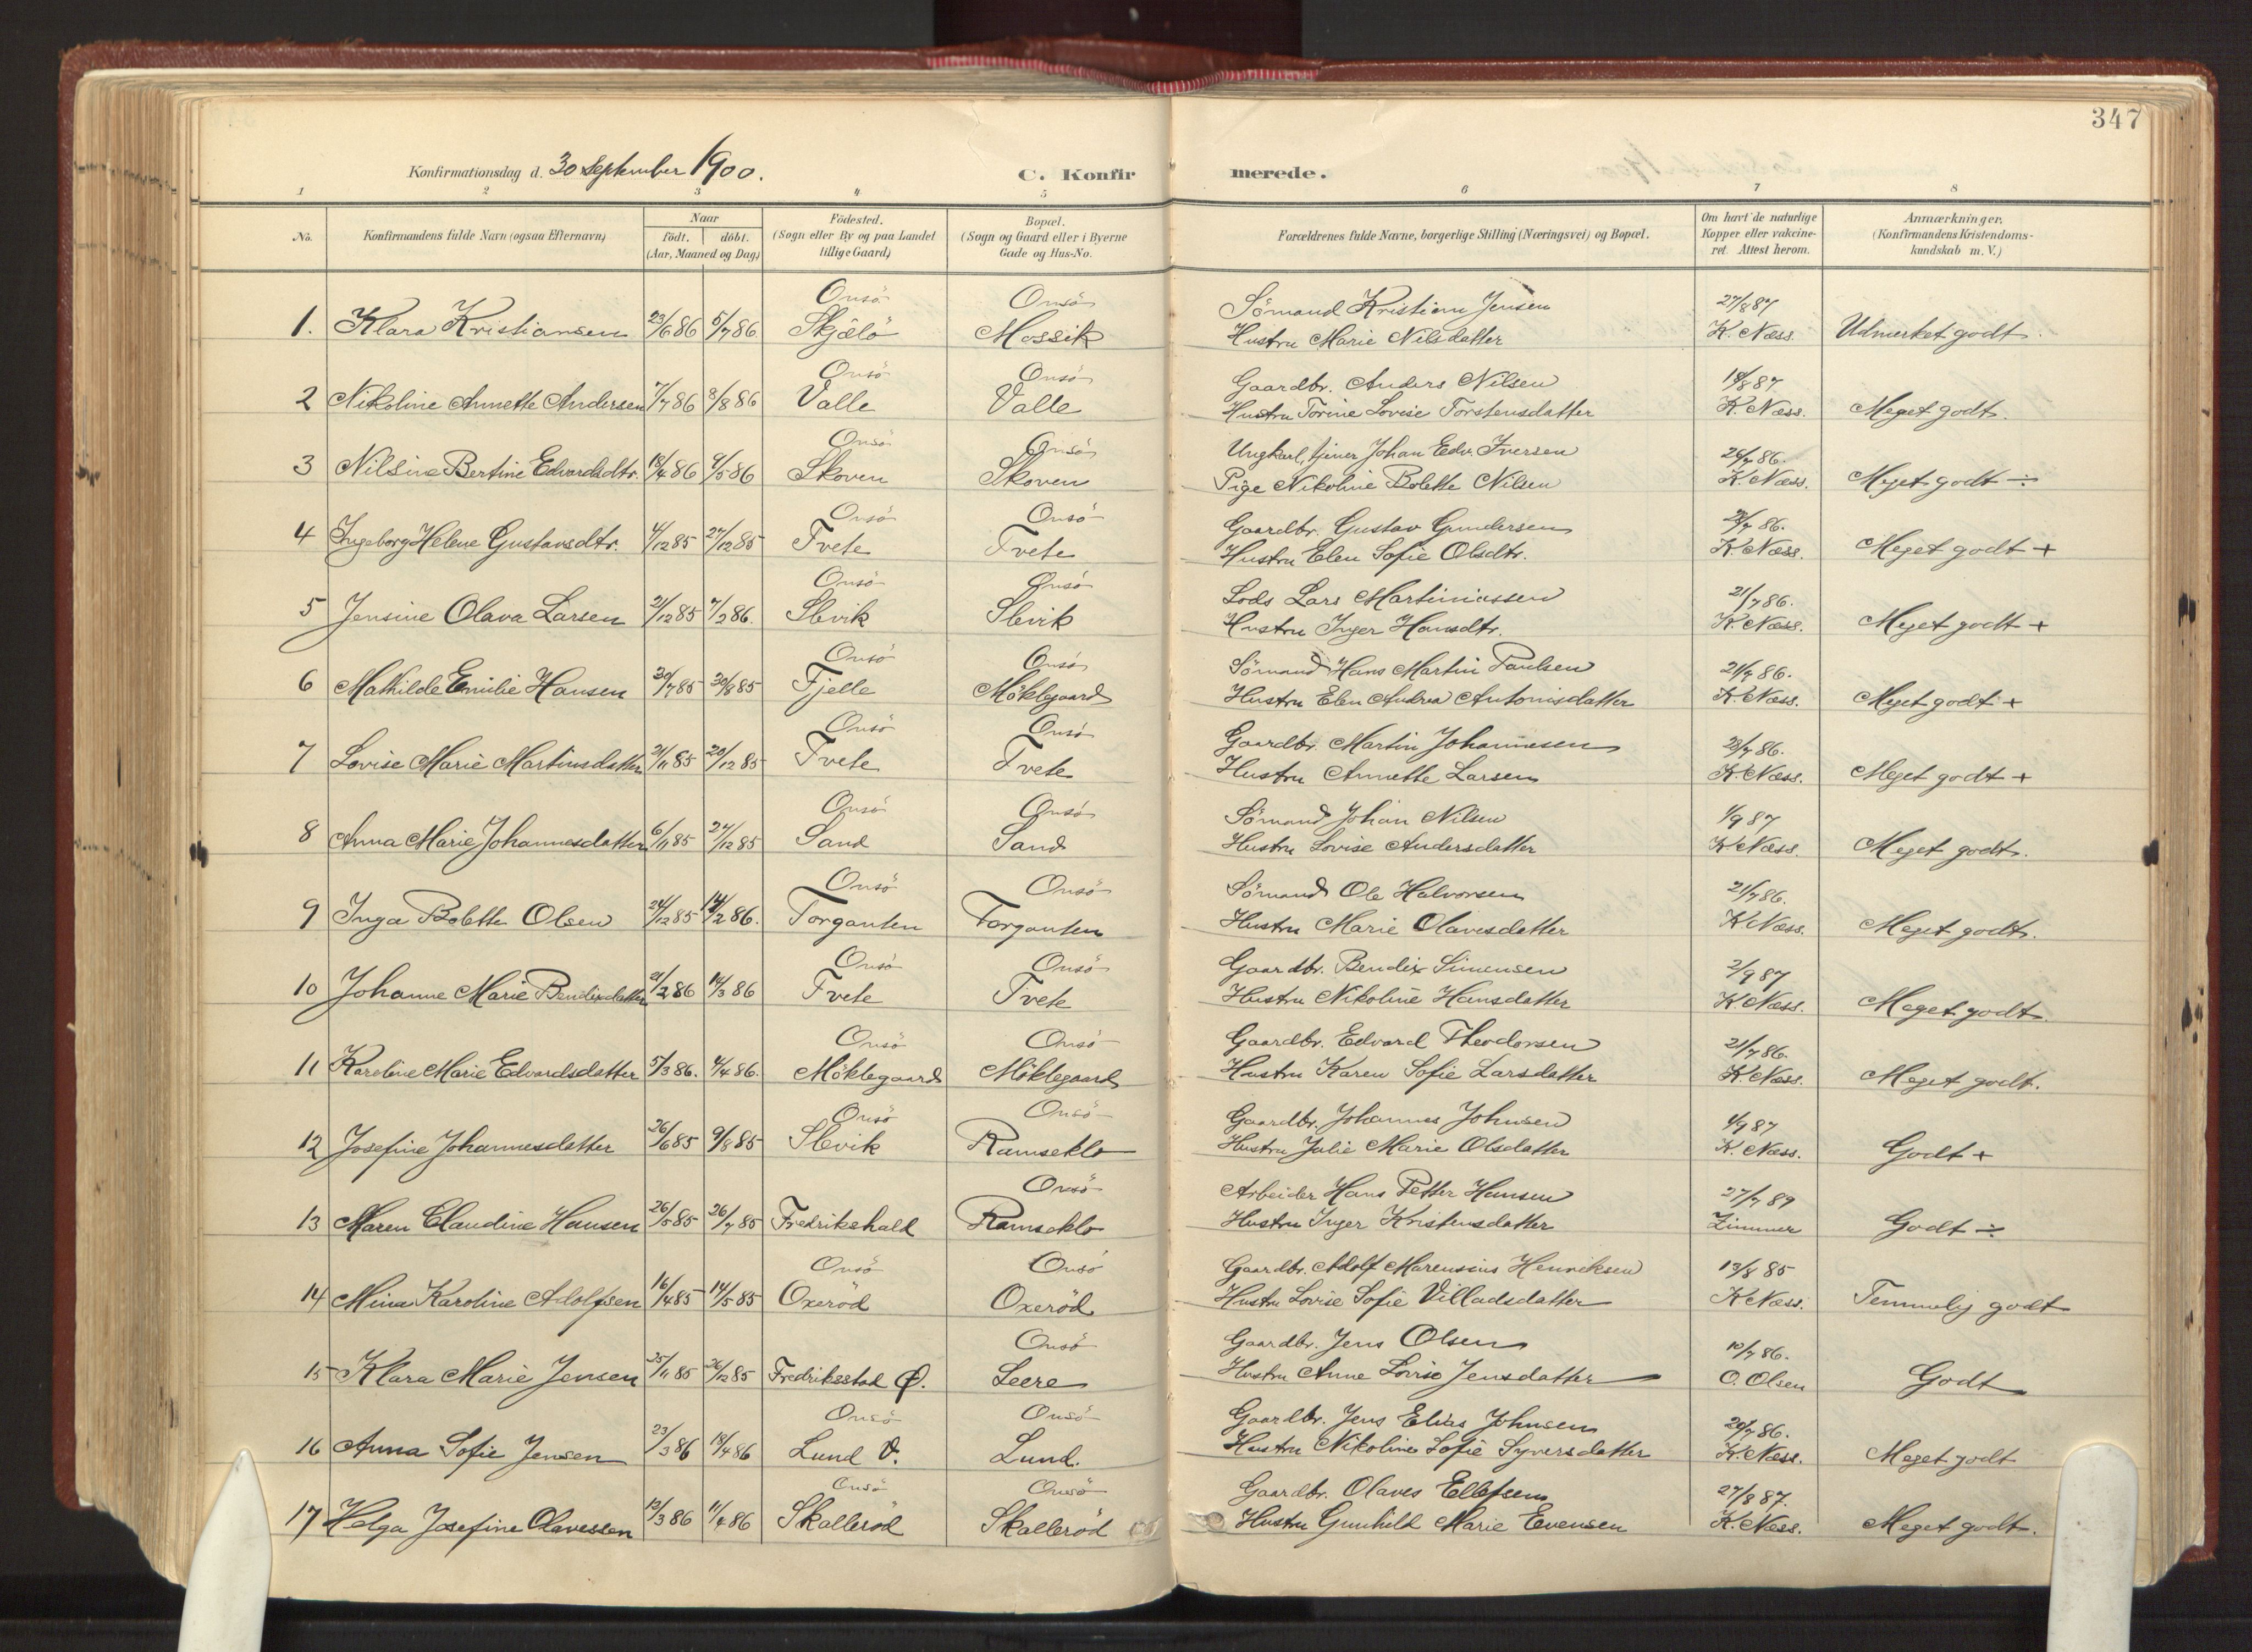 347
Konfirmationsdag d. 30 September 1900. C. Konfirmerede.
1 2 3 4 5 6 7 8
No. Konfirmandens fulde Navn (ogsaa Efternavn) Naar født. døbt. (Aar, Maaned og Dag) Födested. (Sogn eller By og paa Landet tillige Gaard) Bopæl. (Sogn og Gaard eller i Byerne Gade og Hus-No. Forældrenes fulde Navne, borgerlige Stilling (Næringsvei) og Bopæl. Om havt de naturlige Kopper eller vakcineret. Attest herom. Anmærkninger. (Konfirmandens Kristendomskundskab m.V.)
Onsö Onsö Sömand Kristian Jensen 27/8 87
1. Klara Kristiansen 23/6 86 5/7 86 Skjælö Mossik Hustru Marie Nilsdatter K. Næss. Udmerket godt.
Onsö Onsö Gaardbr. Anders Nilsen 18/8 87
2 Nikoline Annette Andersen 7/7 86 8/8 86 Valle Valle Hustru Torine Lovise Torstensdatter K. Næss. Meget godt.
Onsö Onsö Ungkarl, tjener Johan Edv. Iversen 26/7 86.
3 Nilsine Bertine Edvardsdtr. 18/4 86 9/5 86 Skoven Skoven Pige Nikoline Bolette Nilsen K. Næss. Meget godt ÷
Onsö Onsö Gaardbr. Gustav Gundersen 7 86.
4 Ingeborg Helene Gustavsdtr. 4/12 85 27/12 85 Tvete Tvete Hustru Elen Sofie Olsdtr. K. Næss. Meget godt +
Onsö Onsö Lods Lars Martiniussen 21/7 86.
5 Jensine Olava Larsen 21/12 85 7/2 86. Slevik Slevik Hustru Inger Hansdtr. K. Næss. Meget godt +
Onsö Onsö Sömand Hans Martin Paulsen 21/7 86.
6 Mathilde Emilie Hansen 30/7 85 30/8 85 Fjelle Möklegaard Hustru Elen Andrea Antonisdatter K. Næss. Meget godt +
Onsö Onsö Gaardbr. Martin Johannesen 28/7 86.
7 Lovise Marie Martinsdatter 21/11 85 20/12 85 Tvete Tvete Hustru Annette Larsen K. Næss. Meget godt +
Onsö Onsö Sömand Johan Nilsen 1/9 87
8 Anna Marie Johannesdatter 6/11 85 27/12 85 Sand Sand Hustru Lovise Andersdatter K. Næss. Meget godt.
Onsö Onsö Sömand Ole Halvorsen 21/7 86.
9 Inga Bolette Olsen 24/12 85 14/2 86. Torgauten Torgauten Hustru Marie Olavesdatter K. Næss. Meget godt.
Onsö Onsö Gaardbr. Bendix Simensen 2/9 87
10 Johanne Marie Bendixdatter 21/2 86 14/3 86 Tvete Tvete Hustru Nikoline Hansdatter K. Næss. Meget godt.
Onsö Onsö Gaardbr. Edvard Theodorsen 21/7 86.
11 Karoline Marie Edvardsdatter 5/3 86. 4/4 86. Möklegaard Möklegaard Hustru Karen Sofie Larsdatter K. Næss. Meget godt.
Onsö Onsö Gaardbr. Johannes Johnsen 1/9 87
12 Josefine Johannesdatter 26/6 85 9/8 85 Slevik Ramseklo Hustru Julie Marie Olsdatter K. Næss. Godt +
Onsö Arbeider Hans Petter Hansen 27/7 89
13 Maren Claudine Hansen 26/5 85 26/7 85 Fredrikshald Ramseklo Hustru Inger Kristensdatter Zimmer Godt ÷
Onsö Onsö Gaardbr. Adolf Marensius Henriksen 13/8 85
14 Mina Karoline Adolfsen 16/4 85 14/5 85 Oxeröd Oxeröd Hustru Lovise Sofie Villadsdatter K. Næss. Temmelig godt
Onsö Gaardbr. Jens Olsen 10/7 86.
15 Klara Marie Jensen 25/11 85 26/12 85 Fredriksstad Ø. Leere Hustru Anne Lovise Jensdatter O. Olsen Godt
Onsö Onsö Gaardbr. Jens Elias Johnsen 20/7 86.
16 Anna Sofie Jensen 23/3 86 18/4 86 Lund V. Lund. Hustru Nikoline Sofie Syversdatter K. Næss. Meget godt
Onsö Onsö Gaardbr. Olaves Ellefsen 27/8 87.
17 Helga Josefine Olavessen 13/3 86 11/4 86 Skalleröd Skalleröd Hustru Gunhild Marie Evensen K. Næss. Meget godt.